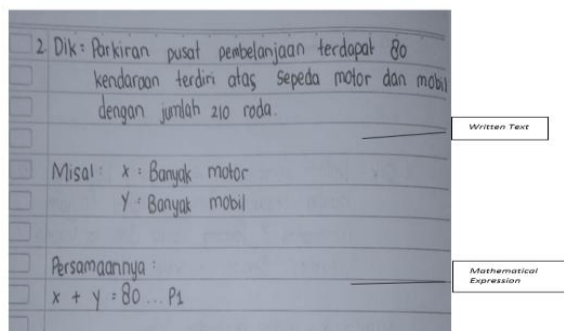 2. Dik : Parkiran pusat pembelanjaan terdapat 80
kendaraan terdiri atas sepeda motor dan mobil
dengan jumlah 210 roda.
Written Text
Misal : x : Banyak motor
Y : Banyak mobil
Persamaannya :
Mathematical
Expression
x + y = 80 ... P1